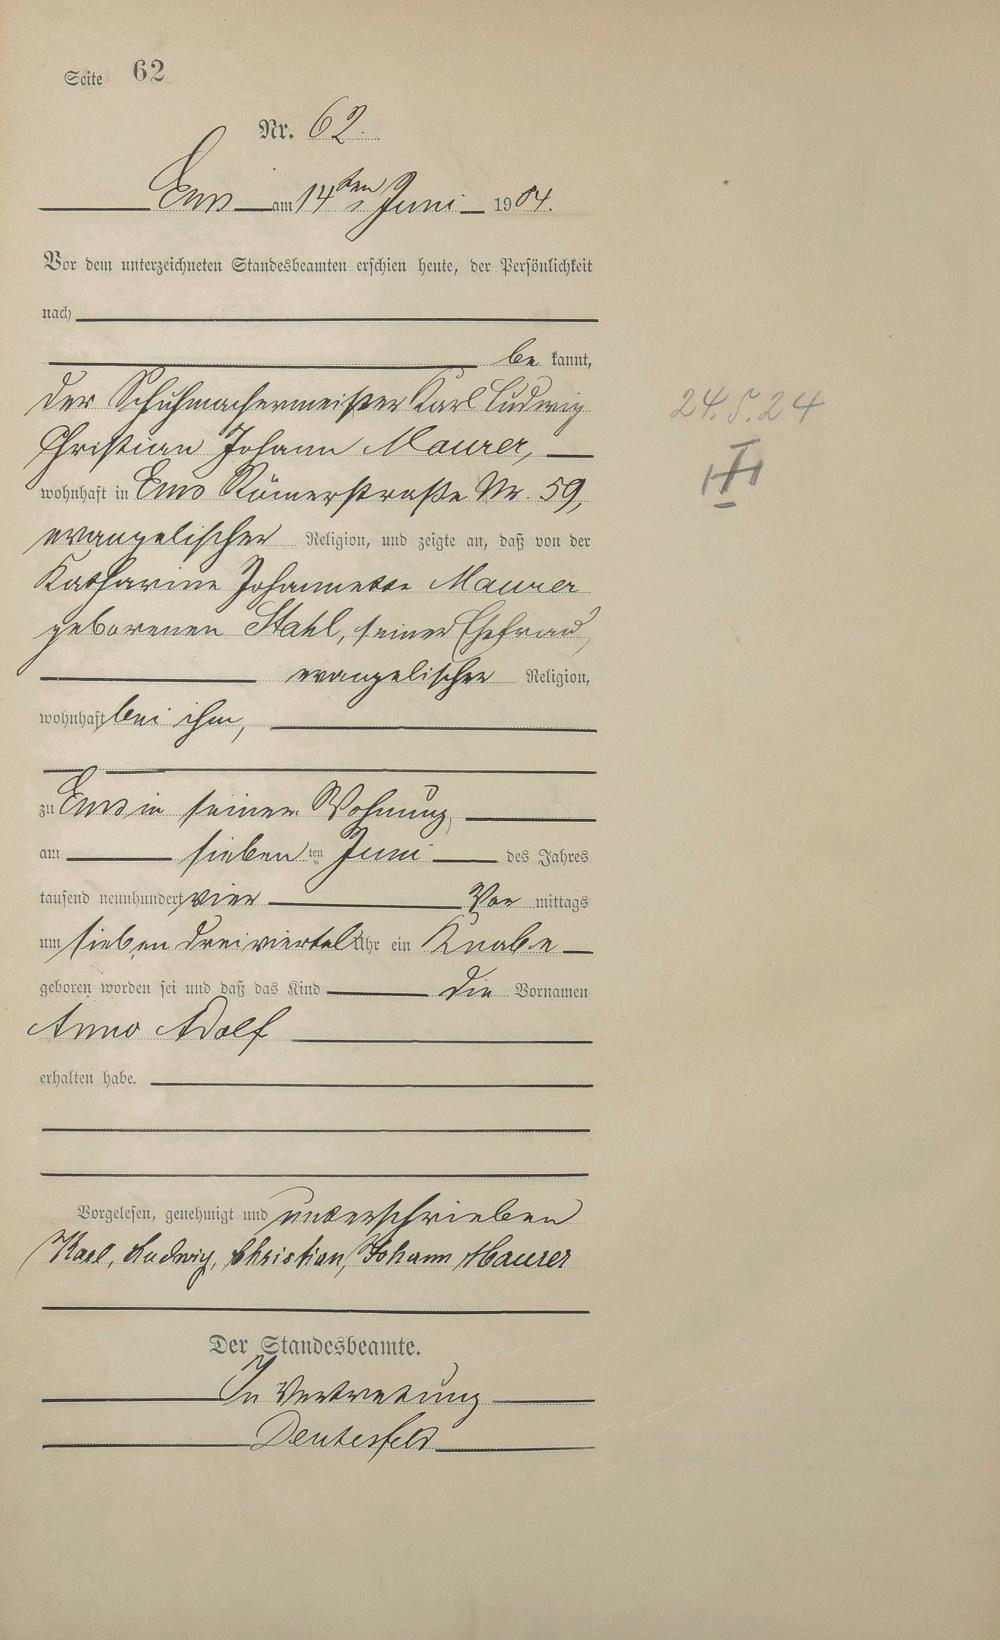 Seite 62
Nr. 62.
Ems am 14ten Juni 1904.
Vor dem unterzeichneten Standesbeamten erschien heute, der Persönlichkeit
nach
be kannt,
der Schuhmachermeister Karl Ludwig
Christian Johann Maurer,
wohnhaft in Ems Römerstraße Nr. 59,
evangelischer Religion, und zeigte an, daß von der
Katharine Johannette Maurer
geborenen Stahl, seiner Ehefrau,
evangelischer Religion,
wohnhaft bei ihm,
zu Ems in seiner Wohnung,
am sieben ten Juni des Jahres
tausend neunhundert vier Vor mittags
um sieben dreiviertel Uhr ein Knabe
geboren worden sei und daß das Kind die Vornamen
Anno Adolf
erhalten habe.
Vorgelesen, genehmigt und unterschrieben
Karl, Ludwig, Christian, Johann Maurer
Der Standesbeamte.
In Vertretung
24.5.24